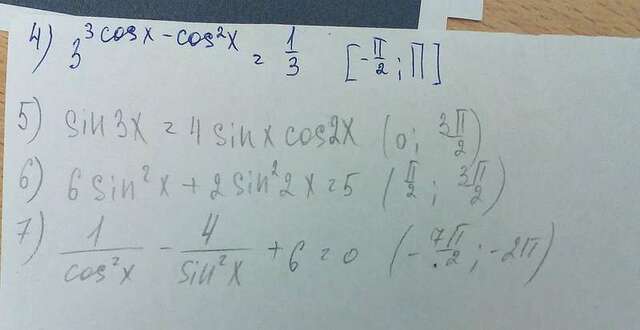 4) 3^(3cosx - cos²x) = 1/3 [-π/2; π]
5) sin3x = 4sinx cos2x (0; 3π/2)
6) 6sin²x + 2sin²2x = 5 (π/2; 3π/2)
7) 1/cos²x - 4/sin²x + 6 = 0 (-7π/2; -2π)